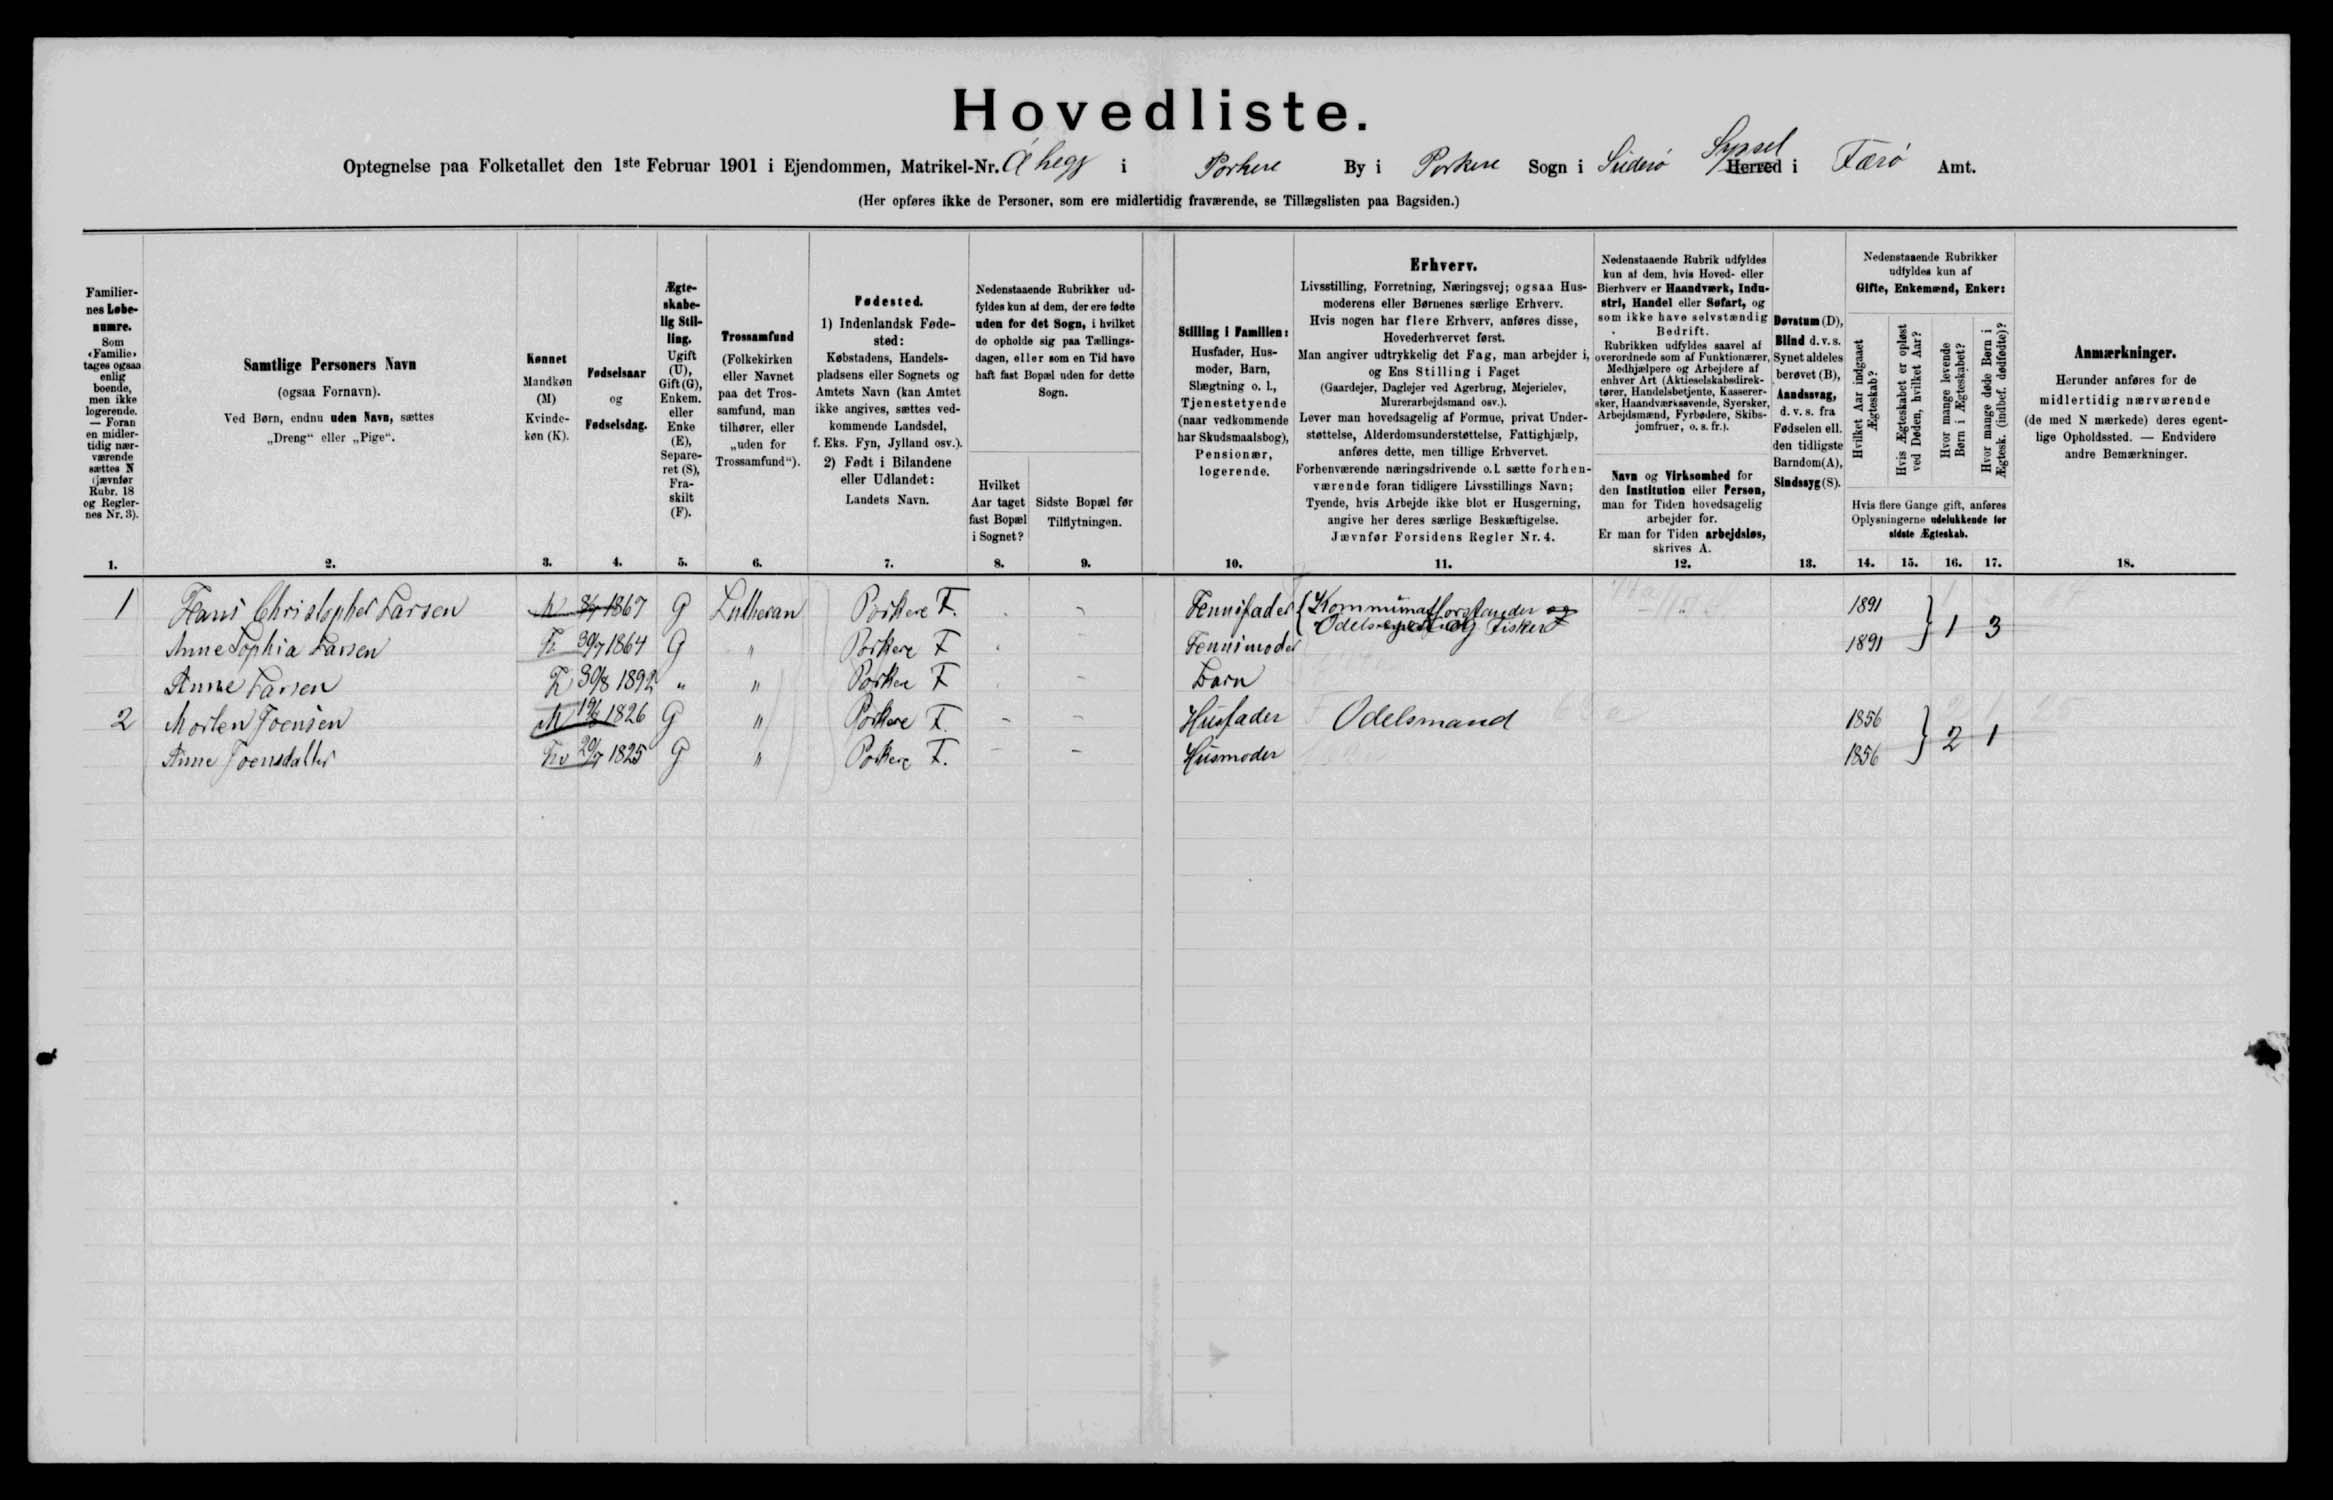 Hovedliste.
Optegnelse paa Folketallet den 1ste Februar 1901 i Ejendommen, Matrikel-Nr. Å hegg i Porkere By i Porkere Sogn i Suderø Syssel Herred i Færø Amt.
(Her opføres ikke de Personer, som ere midlertidig fraværende, se Tillægslisten paa Bagsiden.)
Familier-
nes Løbe-
numre.
Som
«Familie»
tages ogsaa
enlig
boende,
men ikke
logerende.
— Foran
en midler-
tidig nær-
værende
sættes N
(jævnfør
Rubr. 18
og Regler-
nes Nr. 3).
1.
Samtlige Personers Navn
(ogsaa Fornavn).
Ved Børn, endnu uden Navn, sættes
„Dreng“ eller „Pige“.
2.
Kønnet
Mandkøn
(M)
Kvinde-
køn (K).
3.
Fødselsaar
og
Fødselsdag.
4.
Ægte-
skabe-
lig Stil-
ling.
Ugift
(U),
Gift (G),
Enkem.
eller
Enke
(E),
Separe-
ret (S),
Fra-
skilt
(F).
5.
Trossamfund
(Folkekirken
eller Navnet
paa det Tros-
samfund, man
tilhører, eller
„uden for
Trossamfund“).
6.
Fødested.
1) Indenlandsk Føde-
sted:
Købstadens, Handels-
pladsens eller Sognets og
Amtets Navn (kan Amtet
ikke angives, sættes ved-
kommende Landsdel,
f. Eks. Fyn, Jylland osv.).
2) Født i Bilandene
eller Udlandet:
Landets Navn.
7.
Nedenstaaende Rubrikker ud-
fyldes kun af dem, der ere fødte
uden for det Sogn, i hvilket
de opholde sig paa Tællings-
dagen, eller som en Tid have
haft fast Bopæl uden for dette
Sogn.
Hvilket
Aar taget
fast Bopæl
i Sognet?
8.
Sidste Bopæl før
Tilflytningen.
9.
Stilling i Familien:
Husfader, Hus-
moder, Barn,
Slægtning o. l.,
Tjenestetyende
(naar vedkommende
har Skudsmaalsbog),
Pensionær,
logerende.
10.
Erhverv.
Livsstilling, Forretning, Næringsvej; ogsaa Hus-
moderens eller Børnenes særlige Erhverv.
Hvis nogen har flere Erhverv, anføres disse,
Hovederhvervet først.
Man angiver udtrykkelig det Fag, man arbejder i,
og Ens Stilling i Faget
(Gaardejer, Daglejer ved Agerbrug, Mejerielev,
Murerarbejdsmand osv.).
Lever man hovedsagelig af Formue, privat Under-
støttelse, Alderdomsunderstøttelse, Fattighjælp,
anføres dette, men tillige Erhvervet.
Forhenværende næringsdrivende o. l. sætte forhen-
værende foran tidligere Livsstillings Navn;
Tyende, hvis Arbejde ikke blot er Husgerning,
angive her deres særlige Beskæftigelse.
Jævnfør Forsidens Regler Nr. 4.
11.
Nedenstaaende Rubrik udfyldes
kun af dem, hvis Hoved- eller
Bierhverv er Haandværk, Indu-
stri, Handel eller Søfart, og
som ikke have selvstændig
Bedrift.
Rubrikken udfyldes saavel af
overordnede som af Funktionærer,
Medhjælpere og Arbejdere af
enhver Art (Aktieselskabsdirek-
tører, Handelsbetjente, Kasserer-
sker, Haandværkssvende, Syersker,
Arbejdsmænd, Fyrbødere, Skibs-
jomfruer, o. s. fr.).
Navn og Virksomhed for
den Institution eller Person,
man for Tiden hovedsagelig
arbejder for.
Er man for Tiden arbejdsløs,
skrives A.
12.
Døvstum (D),
Blind d. v. s.
Synet aldeles
berøvet (B),
Aandssvag,
d. v. s. fra
Fødselen ell.
den tidligste
Barndom (A),
Sindssyg (S).
13.
Nedenstaaende Rubrikker
udfyldes kun af
Gifte, Enkemænd, Enker:
Hvilket Aar indgaaet
Ægteskab?
Hvis Ægteskabet er opløst
ved Døden, hvilket Aar?
Hvor mange levende
Børn i Ægteskabet?
Hvor mange døde Børn i
Ægtesk. (indbef. dødfødte)?
Hvis flere Gange gift, anføres
Oplysningerne udelukkende for
sidste Ægteskab.
14. 15. 16. 17.
Anmærkninger.
Herunder anføres for de
midlertidig nærværende
(de med N mærkede) deres egent-
lige Opholdssted. — Endvidere
andre Bemærkninger.
18.
1 Hans Christopher Larsen M 1867 G Lutheran Porkere F. - Huusfader { Kommunalforstander og 1891 } 1 3
Odelsmand og Fisker
Anne Sophia Larsen K 30/7 1864 G " Porkere F Huusmoder 1891
Anne Larsen K 30/8 1892 " " Porkere F - Barn
2 Morten Joensen M 1826 G " Porkere F. - - Husfader Odelsmand 1856 } 2 1
Anne Joensdatter Kv 29/7 1825 G " Porkere F. - - Husmoder 1856